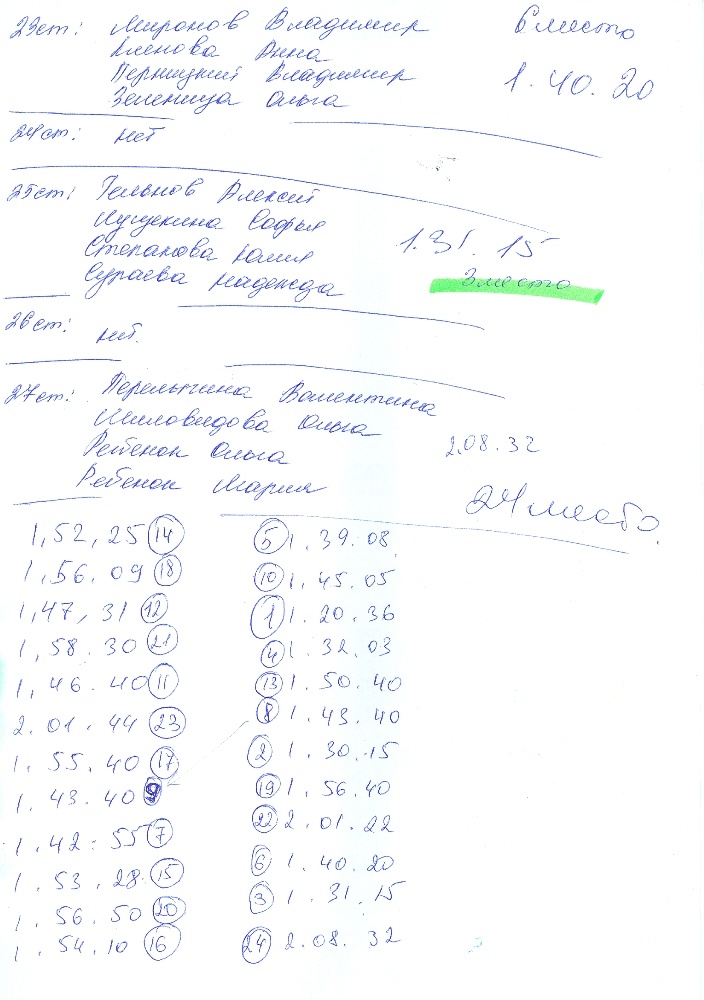 23ст: Миронов Владимир 6 место
Аленова Анна
Перницкий Владимир 1.40.20
Зеленица Ольга
24ст: нет
25ст: Гельнов Алексей
Лущекина Софья
Степанова Юлия 1.31.15
Сураева Надежда 3 место
26ст: нет.
27ст: Перелыгина Валентина
Миловидова Ольга
Ребенок Ольга 2.08.32
Ребенок Мария
24 место.
1,52,25 14 5 1.39.08
1,56.09 18 10 1.45.05
1,47,31 12 1 1.20.36
1,58.30 21 4 1.32.03
1,46.40 11 13 1.50.40
2.01.44 23 8 1.43.40
1.55.40 17 2 1.30.15
1.43.40 9 19 1.56.40
1.42:55 7 22 2.01.22
1.53.28 15 6 1.40.20
1.56.50 20 3 1.31.15
1.54.10 16 24 2.08.32